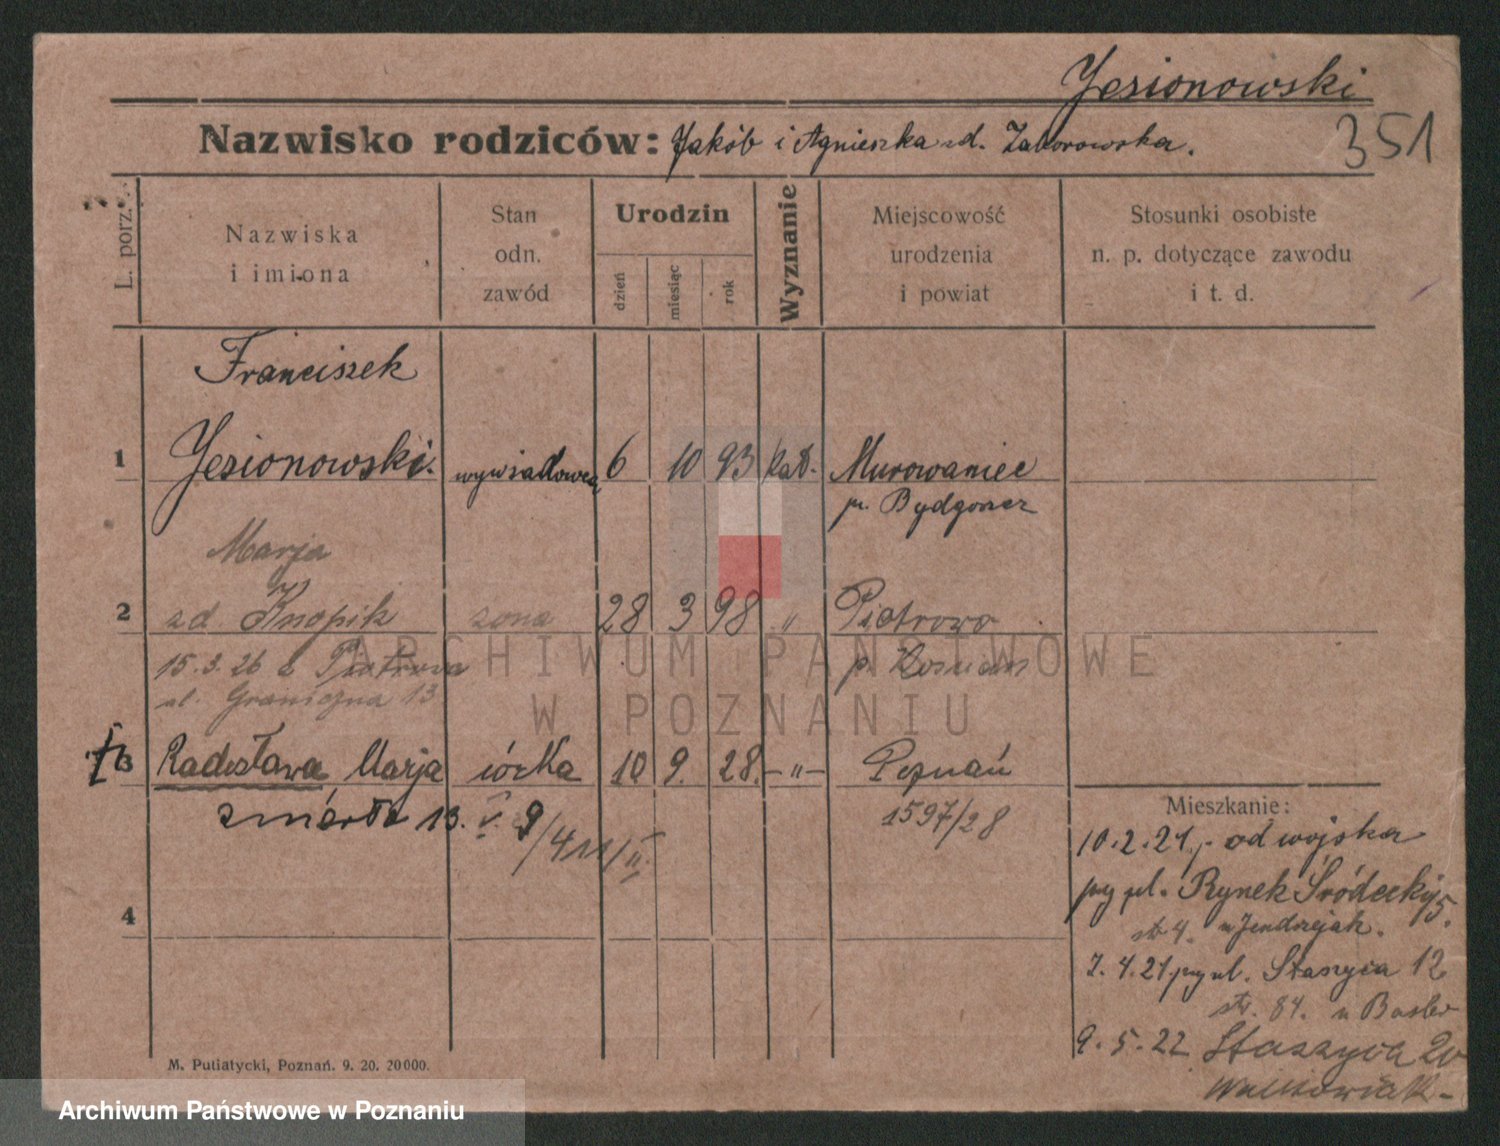 Jesionowski
Nazwisko rodziców: Jakób i Agnieszka zd. Zaborowska.
351
L. porz.
Nazwiska
i imiona
Stan
odn.
zawód
Urodzin
dzień
miesiąc
rok
Wyznanie
Miejscowość
urodzenia
i powiat
Stosunki osobiste
n. p. dotyczące zawodu
i t. d.
Franciszek
1 Jesionowski. wywiadowca 6 10 93 kat. Murowaniec
p. Bydgoszcz
Marja
2 zd. Knopik żona 28 3 98 " Piotrowo
15.3.26 z Piotrowa p.
ul. Graniczna 13
3 Radosława Marja córka 10 9. 28. –"– Poznań
zmarła 13. V. 9/411/II.
1597/28
4
Mieszkanie:
10.2.21. od wojska
przy ul. Rynek Śródecki 5.
str 4. u Jendrzejak.
7.4.21 przy ul. Staszyca 12
str. 84. u
9.5.22 Staszyca 20
Walkowiak
M. Putiatycki, Poznań. 9. 20. 20000.
ARCHIWUM PAŃSTWOWE
W POZNANIU
Archiwum Państwowe w Poznaniu